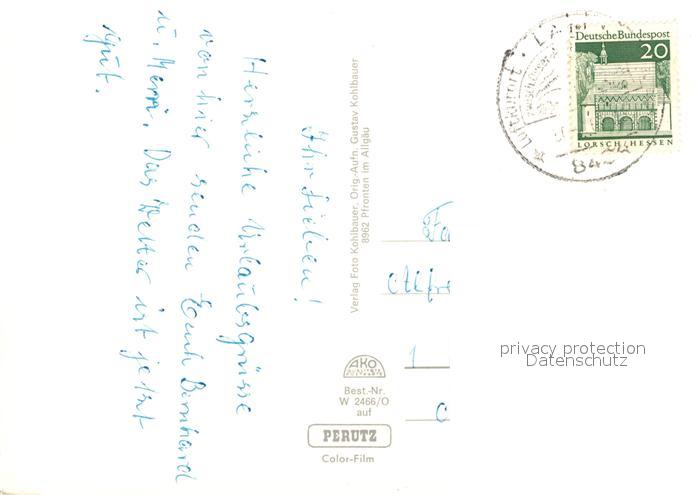 Ihr Lieben!
Herzliche Urlaubsgrüsse
von hier senden Euch Bernhard
u. Das Wetter ist jetzt
gut.
Verlag Foto Kohlbauer, Orig.-Aufn. Gustav Kohlbauer
8962 Pfronten im Allgäu
Deutsche Bundespost
20
LORSCH/HESSEN
Fa
Alfre
1
AKO
Best.-Nr.
W 2466/O
auf
PERUTZ
Color-Film
privacy protection
Datenschutz